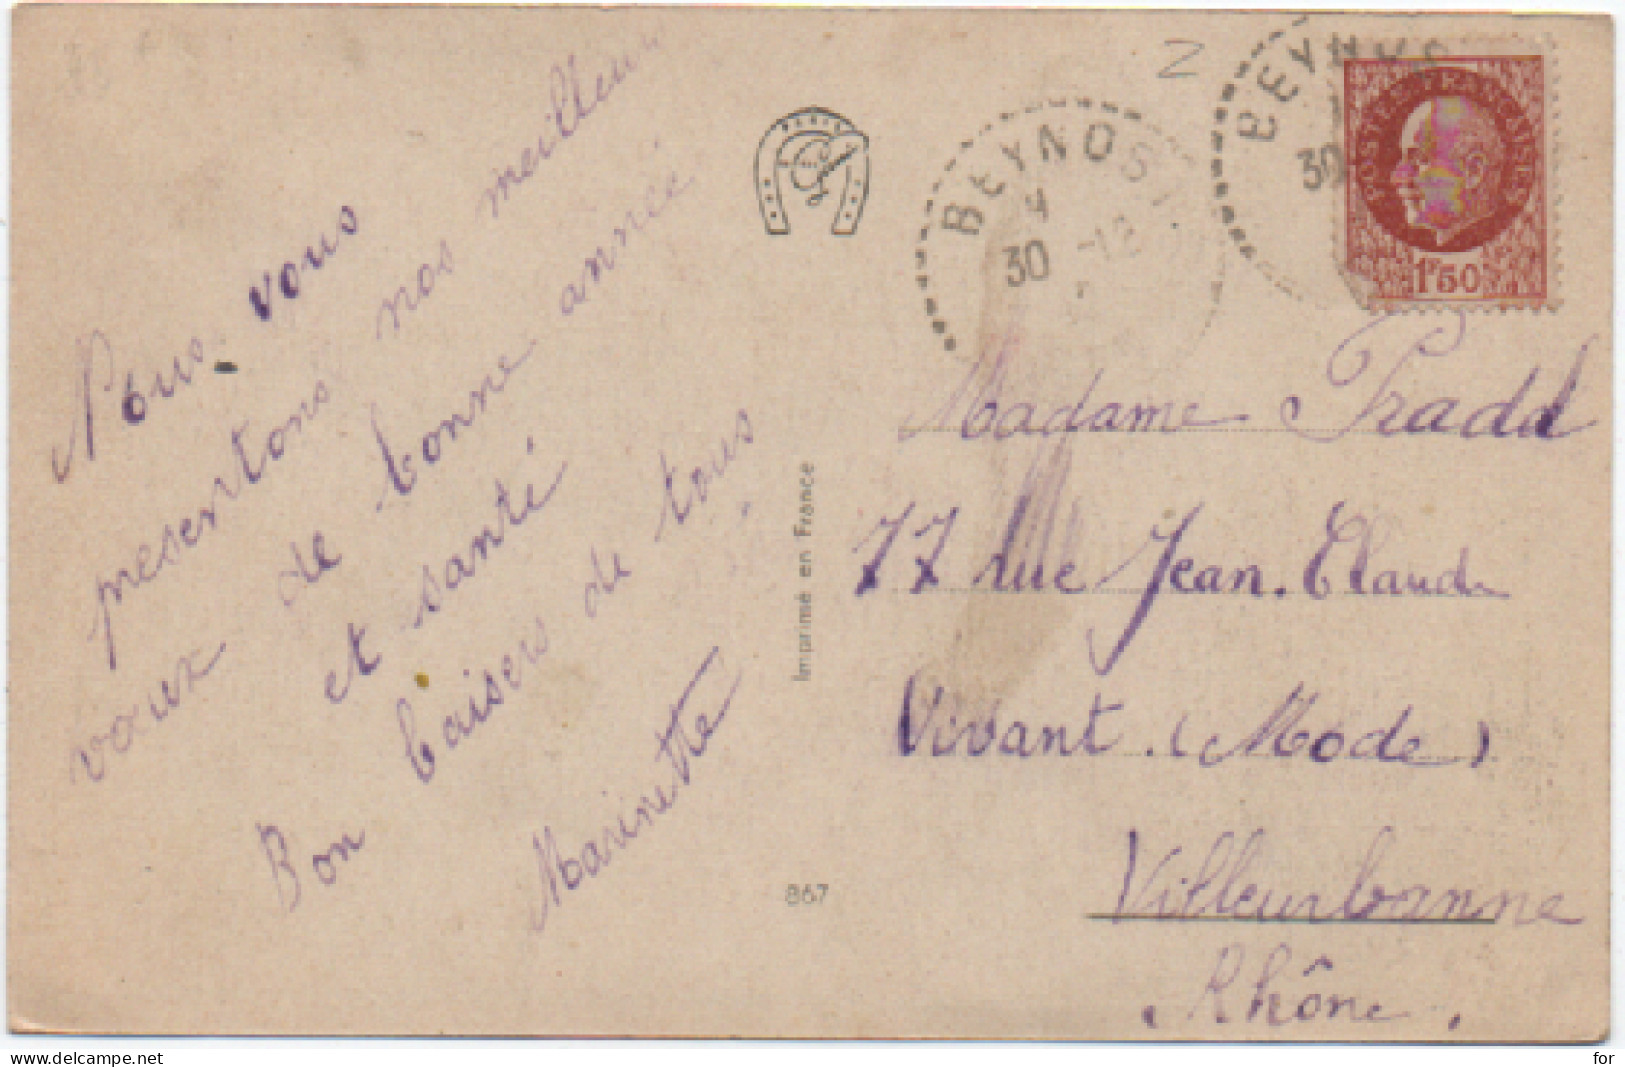 Nous vous
presentons nos meilleur
vœux de bonne année
et santé
Bon baisers de tous
Marinette
PARIS
Imprimé en France
867
BEYNOST
30 -12
BEYNOS
30
POSTES FRANÇAISES
1F50
Madame Pradd
77 Rue Jean. Claude
Vivant. (Mode)
Villeurbanne
Rhône.
www.delcampe.net
for